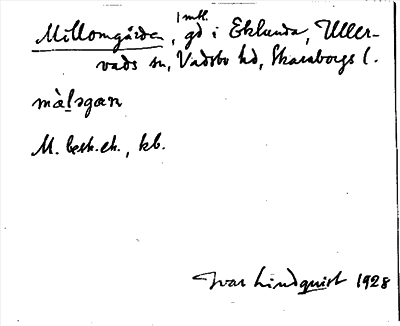 Millomgården, 1 mtl. gd i Eklunda, Uller-
vads sn, Vadsbo hd, Skaraborgs l.
mål̠əgan
M. besk.ch., kb.
Ivar Lindquist 1928